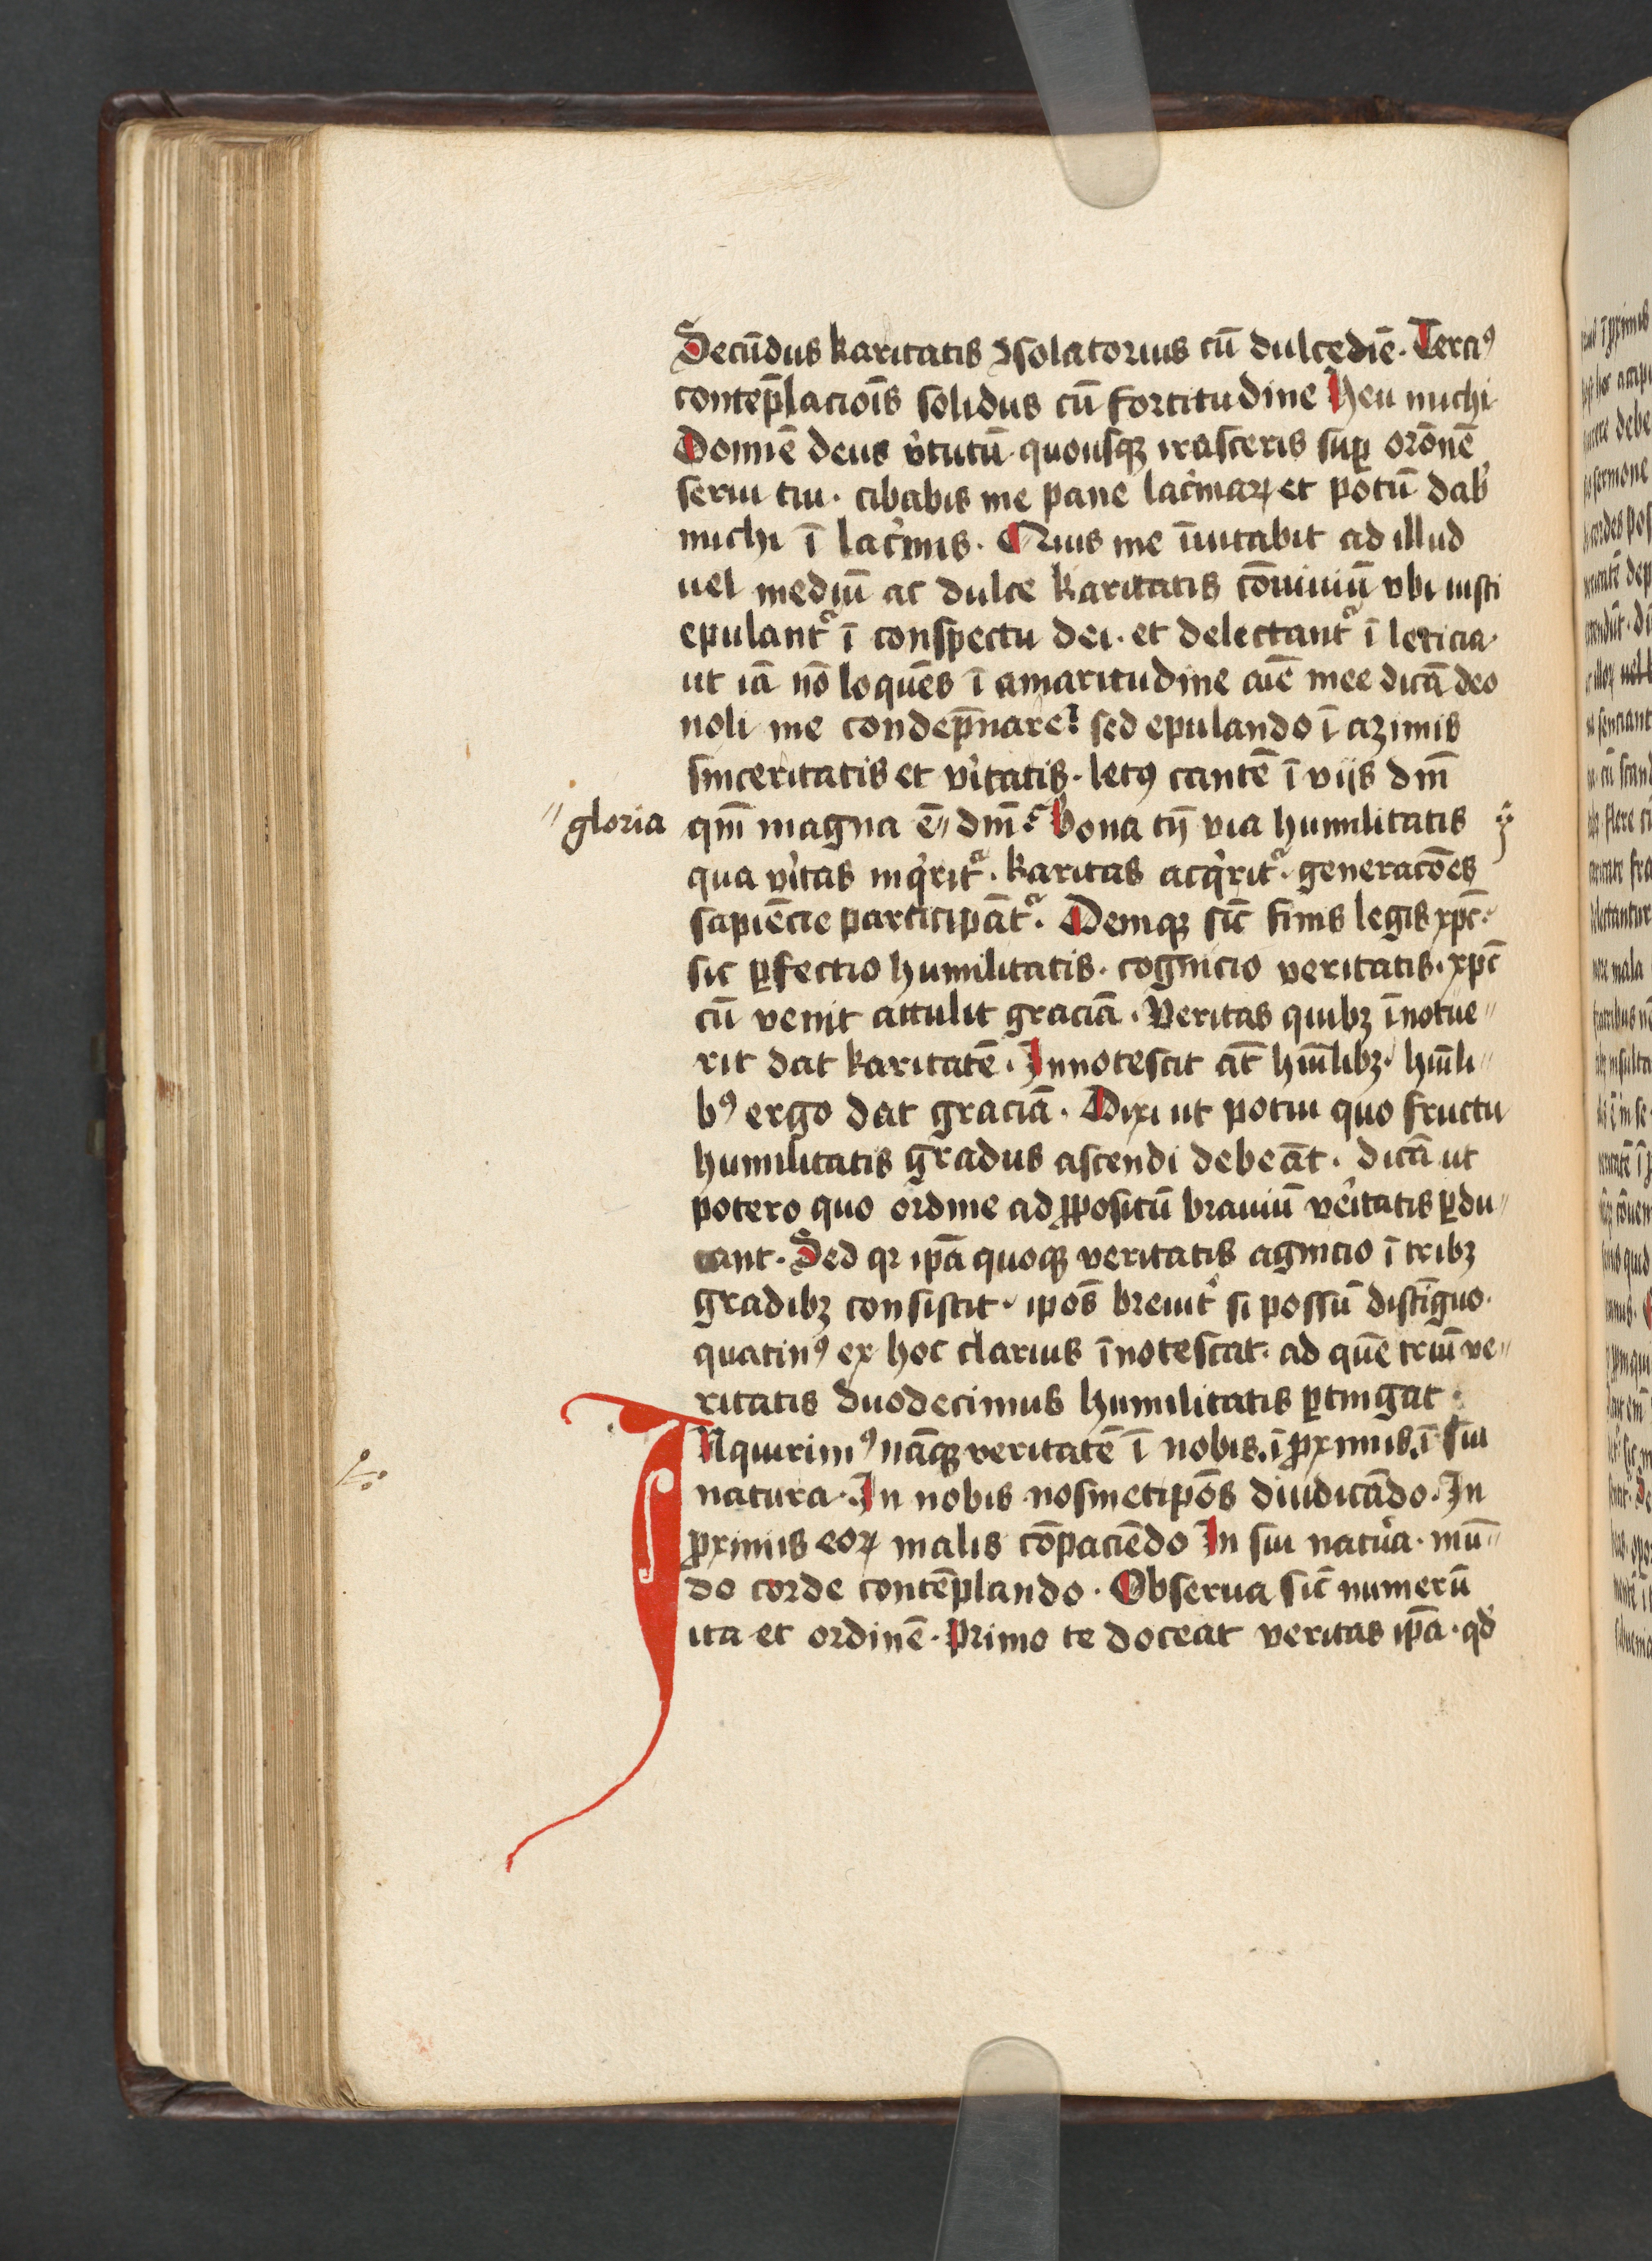 Secūdus karitatis ꝯsolatorius cū dulcediē. Terciꝰ
contep̄lacioīs solidus cū fortitudine Heu michi
Domiē deus v̓tutū quousqꝫ irasceris suꝑ orōnē
serui tui. cibabis me pane lac̓maꝝ et potū dab̓
michi ī lac̓mis. Quis me īuitabit ad illud
uel mediū ac dulce karitatis cōuiuiū vbi iusti
epulant᷑ ī conspectu dei. et delectant᷑ ī leticia.
ut iā nō loquēs ī amaritudine aīe mee dicā deo
noli me condep̄nare? sed epulando ī azimis
sinceritatis et v̓itatis. letꝰ cantē ī viis dnī
qm̄ magna ē〃 dnī. Bona tn̄ via humilitatis
〃gloria
qua v̓itas inq̓rit᷑. karitas acq̓rit᷑. generacōes
sapiēcie participāt᷑. Deniqꝫ sic̄ finis legis xp̄c.
sic ꝑfectio humilitatis. cognicio veritatis. xp̄c
cū venit attulit graciā. Veritas quibꝫ īnotue〃
rit dat karitatē. Innotescit āt hūilibꝫ. hūili〃
bꝰ ergo dat graciā. Dixi ut potui quo fructu
humilitatis gradus ascendi debeāt. dicā ut
potero quo ordine ad ꝓpositū brauiū v̓eitatis ꝑdu〃
cant. Sed qꝛ ip̄a quoqꝫ veritatis agnicio ī tribꝫ
gradibꝫ consistit. ip̄os breuit̓ si possū distīguo.
quatinꝰ ex hoc clarius īnotescat. ad quē triū ve〃
ritatis duodecimus humilitatis ꝑtingat.
INquirimꝰ nāqꝫ veritatē ī nobis. ī ꝓximis. ī sui
natura. In nobis nosmetip̄os diiudicādo. In
ꝓximis eoꝝ malis cōpaciēdo In sui nat᷑a. mū〃
do corde contēplando. Obserua sic̄ numerū
ita et ordinē. Primo te doceat veritas ip̄a. qd̓